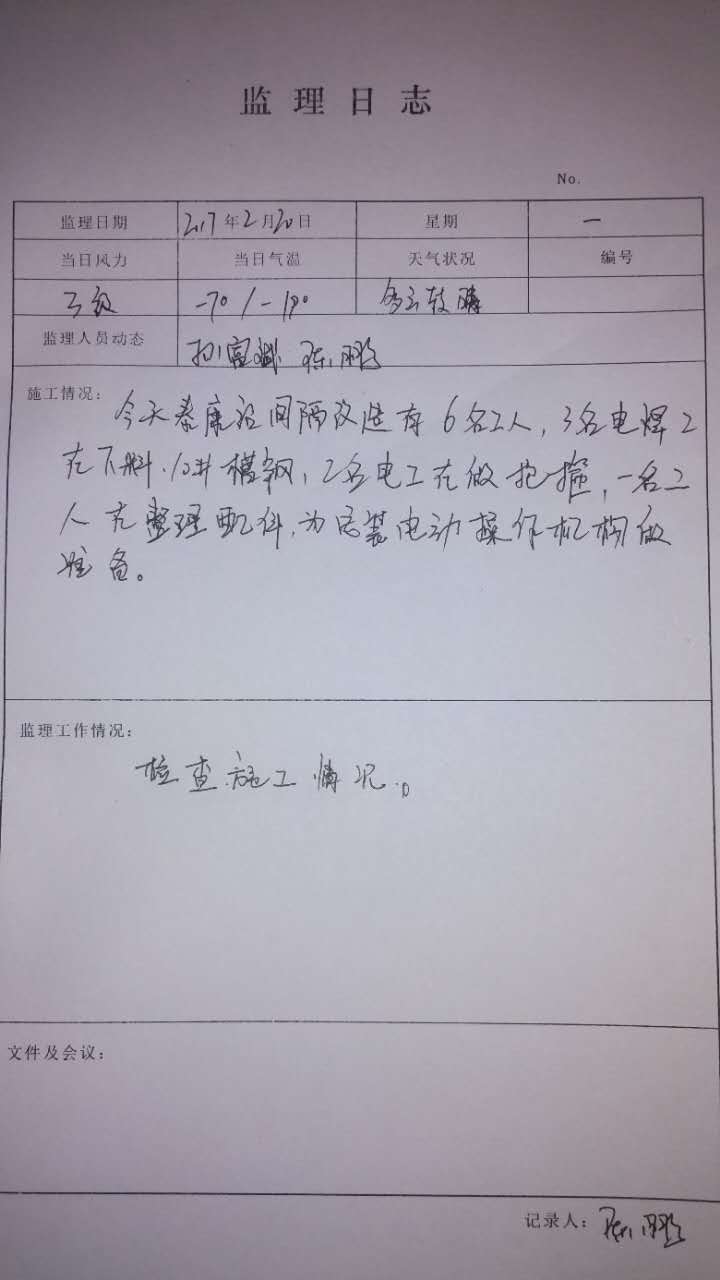 监理日志
No.
监理日期 2017年2月20日 星期 一
当日风力 当日气温 天气状况 编号
3级 -7°/-19° 多云转晴
监理人员动态 陈鹏
施工情况：
今天泰康站间隔改造有6名工人，3名电焊工
在下料.10#槽钢，2名电工在做抱箍，一名工
人在整理配件，为安装电动操作机构做
准备。
监理工作情况：
检查施工情况。
文件及会议：
记录人：陈鹏